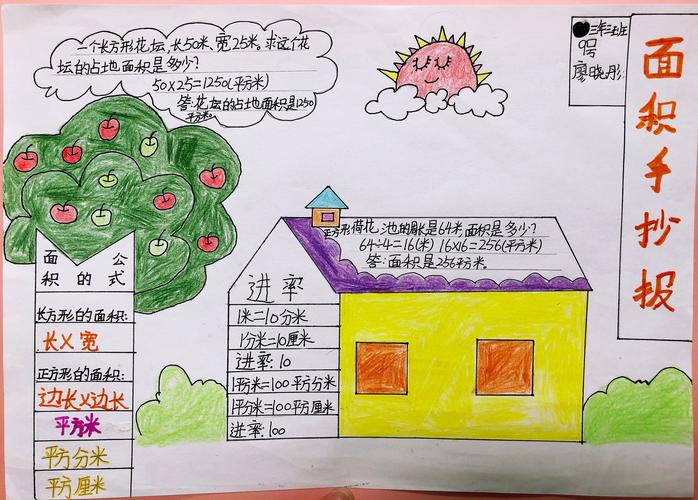 一个长方形花坛,长50米、宽25米。求这个花
坛的占地面积是多少?
50×25=1250(平方米)
答:花坛的占地面积是1250
平方米。
三年三班
9号
廖晓彤
面积手抄报
面 公
积 的 式
长方形的面积:
长×宽
正方形的面积:
边长×边长
平方米
平方分米
平方厘米
正方形荷花池的周长是64米面积是多少?
64÷4=16(米) 16×16=256(平方米)
答:面积是256平方米。
进率
1米=10分米
1分米=10厘米
进率:10
1平方米=100平方分米
1平方米=100平方厘米
进率:100